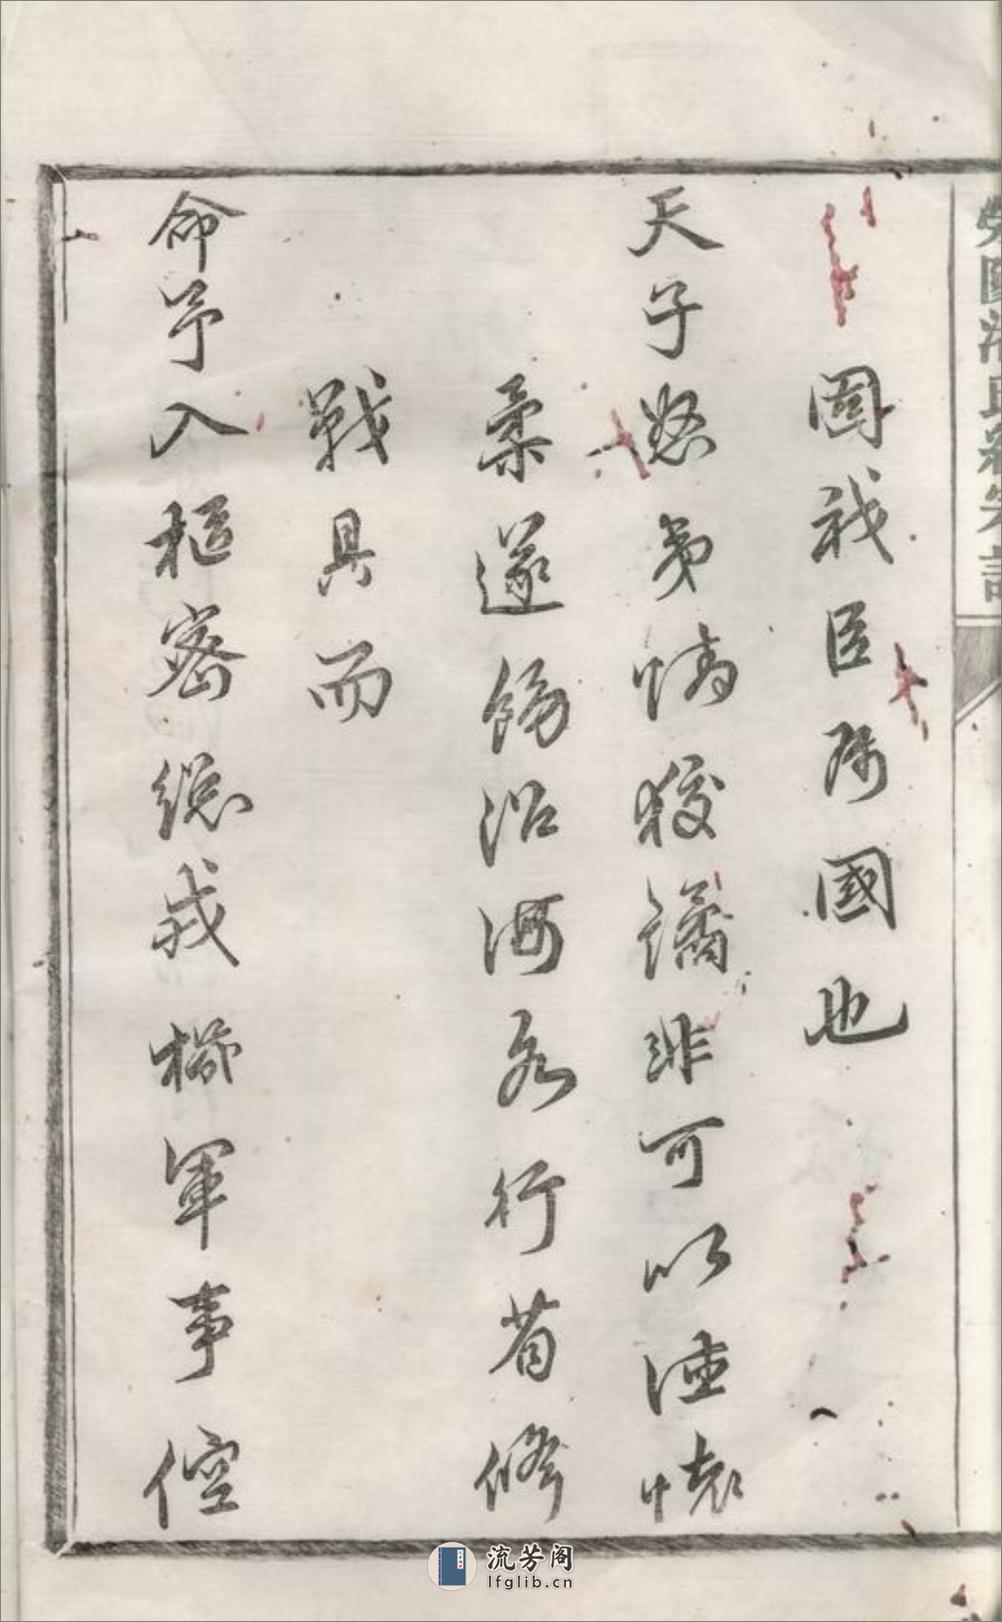 圖我臣屬國也
天子怒夷情狡譎非可以德懷
柔遂飭沿海各行省修
戰具而
命予入樞密總戎機軍事倥
流芳阁
lfglib.cn